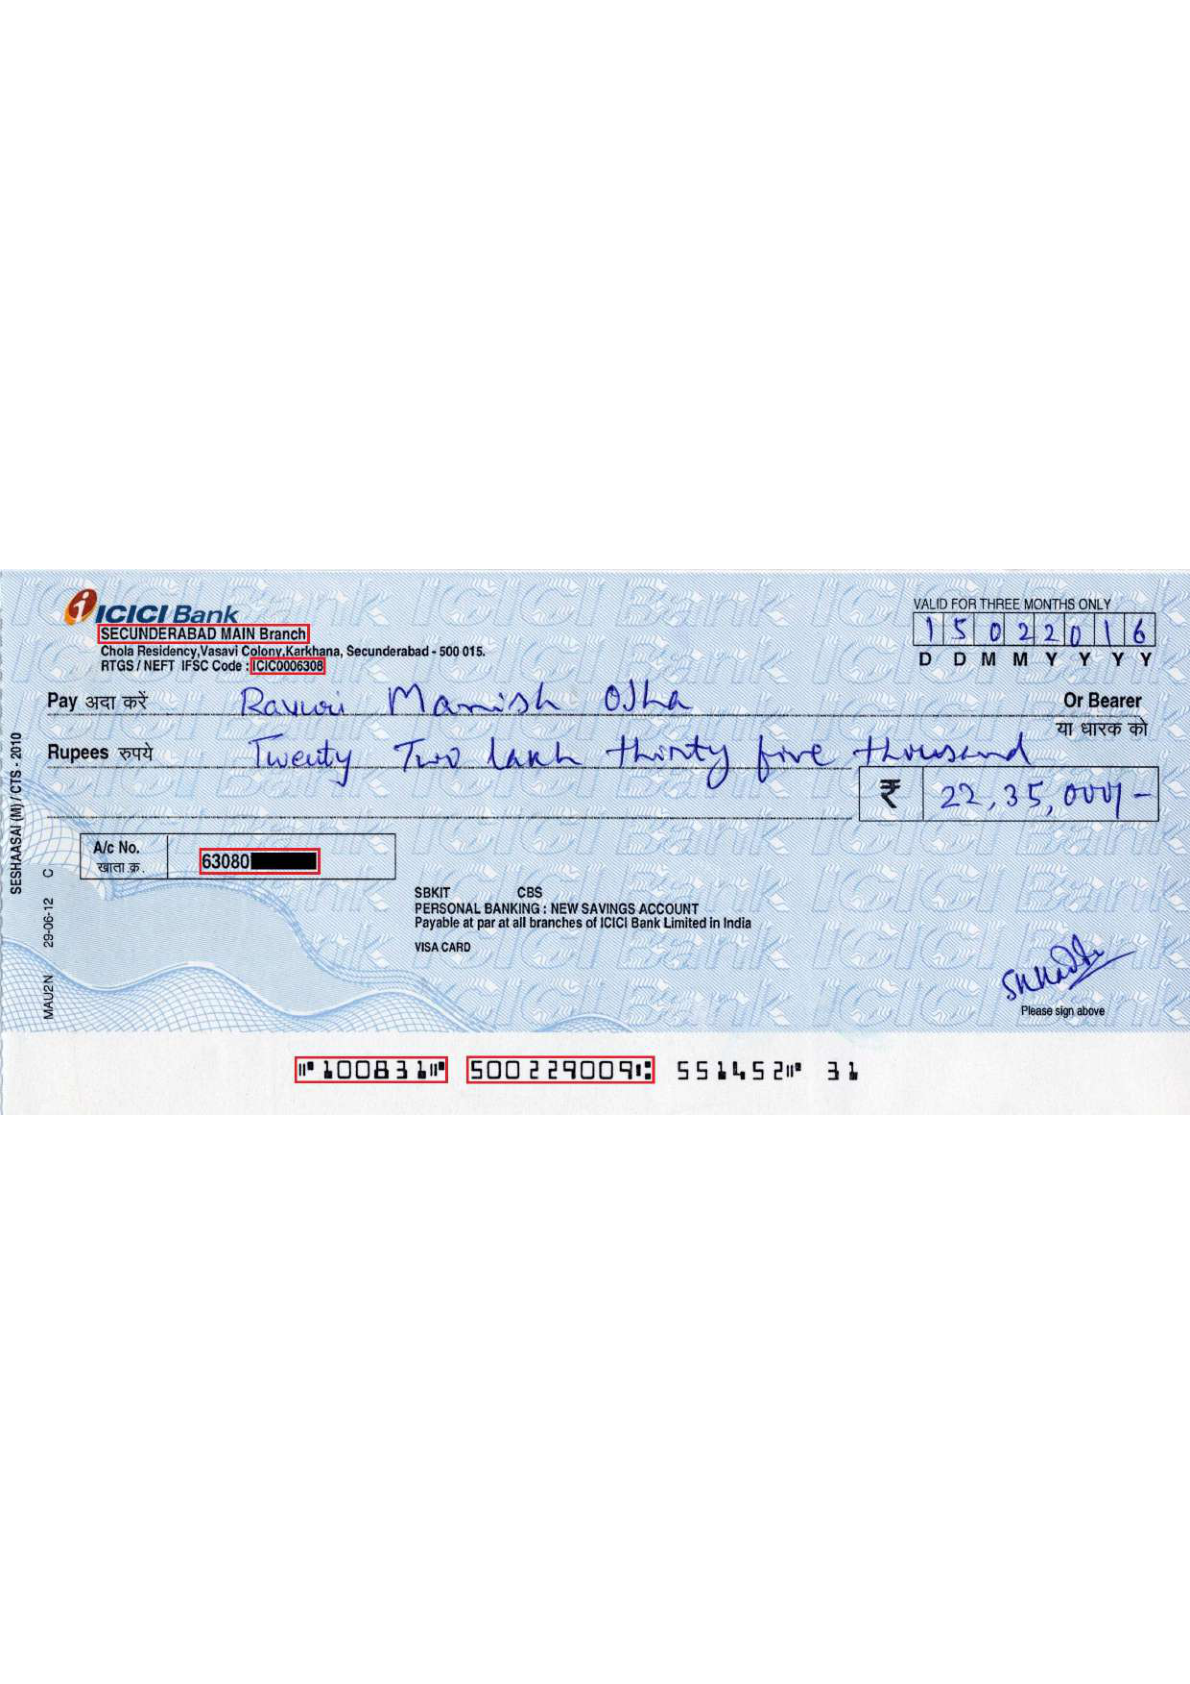 ICICI Bank
SECUNDERABAD MAIN Branch
Chola Residency,Vasavi Colony,Karkhana, Secunderabad - 500 015.
RTGS / NEFT IFSC Code : ICIC0006308
VALID FOR THREE MONTHS ONLY
15022016
D D M M Y Y Y Y
Pay अदा करें Manish Ojha Or Bearer
या धारक को
Rupees रुपये Twenty Two lakh thirty five thousand
₹ 22,35,000/-
A/c No. 63080
खाता क्र.
SBKIT CBS
PERSONAL BANKING : NEW SAVINGS ACCOUNT
Payable at par at all branches of ICICI Bank Limited in India
VISA CARD
Please sign above
SESHAASAI (M) / CTS - 2010
MAU2N 29-06-12 C
⑈100831⑈ 500229009⑆ 551452⑈ 31